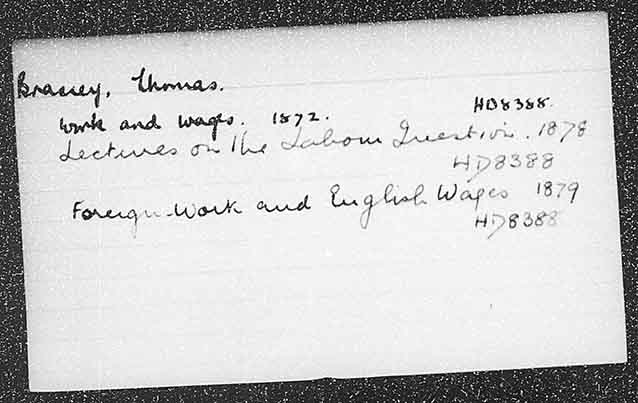 Brassey, Thomas.
Work and Wages. 1872. HD8388.
Lectures on the Labour Question. 1878
HD8388
Foreign Work and English Wages 1879
HD8388